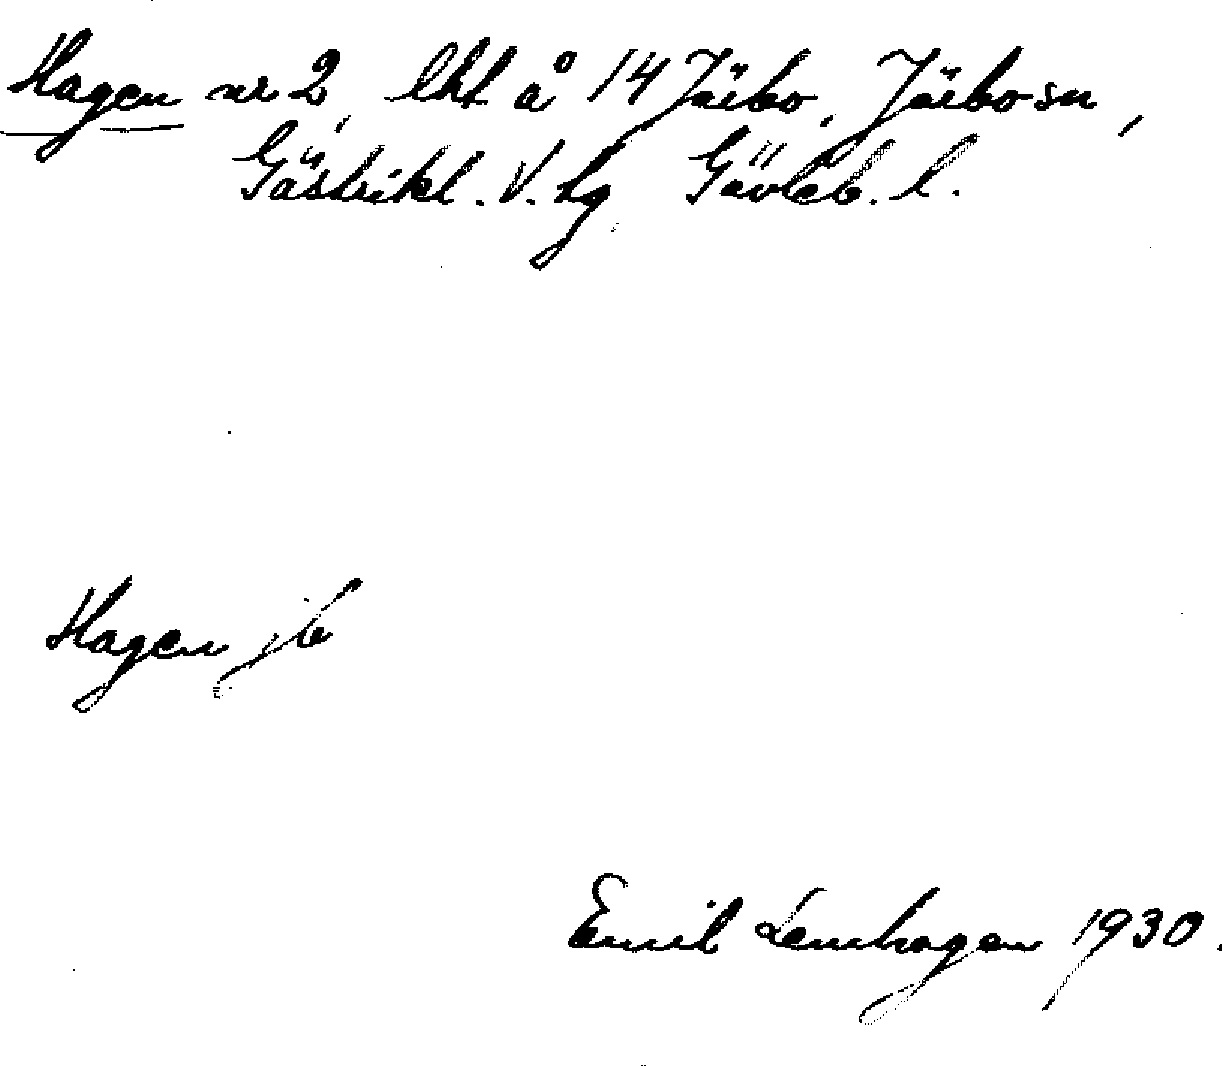 Hagen nr 2, lht å 14 Järbo, Järbo sn,
Gästrikl. V. hg Gävleb. l.
Hagen jb
Emil Lemhagen 1930.